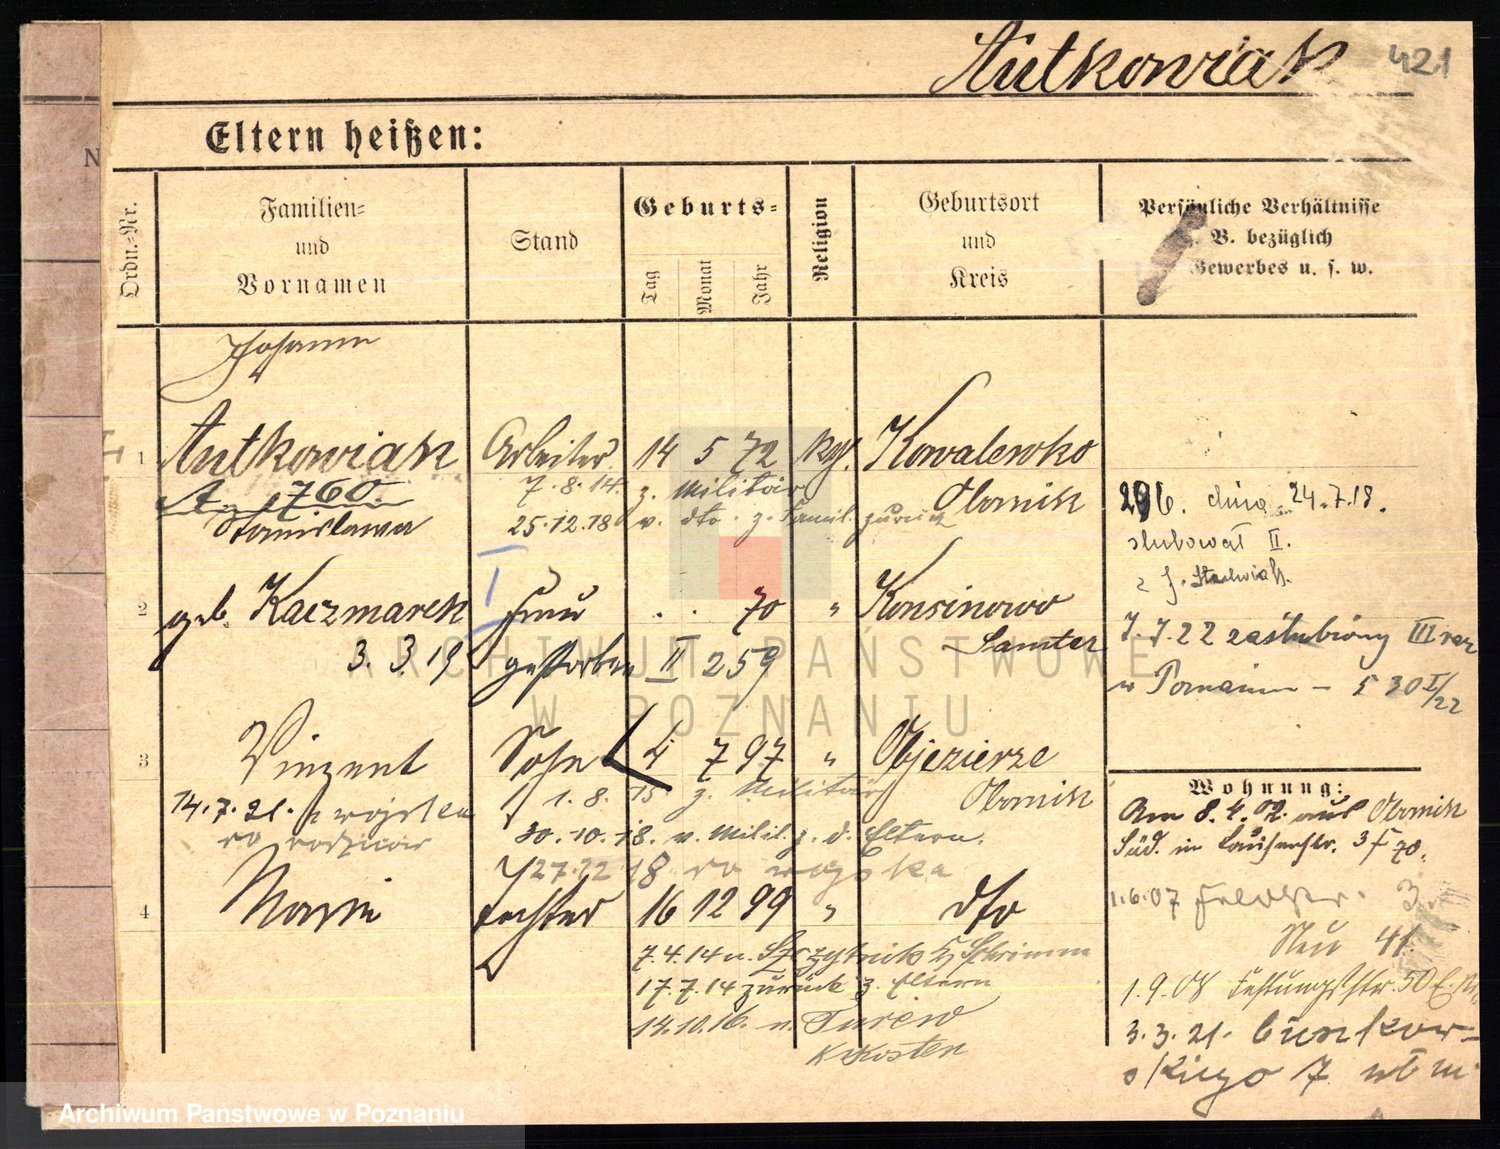 Antkowiak 421
Eltern heißen:
Ordn.-Nr.
Familien-
und
Vornamen
Stand
Geburts-
Tag
Monat
Jahr
Religion
Geburtsort
und
Kreis
Persönliche Verhältnisse
B. bezüglich
Gewerbes u. s. w.
Johann
1 Antkowiak Arbeiter 14 5 72 kgl. Kowalewko
760 7.8.14. z. Militär Obornik
Stanisława 25.12.18 v. dto. z. Famil. zurück
296. dnia 24.7.18.
ślubował II.
z J. Stachwiak.
I
2 geb. Kaczmarek Frau . . 70 " Konsinowo
Samter
3.3.19 gestorben II 259
7.7.22 zaślubiony III raz
w Poznaniu – 5 30 I/22
3 Vinzent Sohn 4 7 97 " Objezierze
1.8.15 z. Militär Obornik
14.7.21. z wojska
30.10.18. v. Milil. z. d. Eltern.
do rodziców
do wojska
4 Marie Tochter 16 12 99 " dto
7.4.14 n. Szczytnik Kr Schrimm
17.7.14 zurück z. Eltern
14.10.16. n. Turew
K Kosten
Wohnung:
Am 8.4.02. aus Obornik
Süd. in
1.6.07 Feldstr. 3.
Neu 41.
1.9.08 Festungsstr. 50
3.3.21. Bunkow-
skiego 7
ARCHIWUM PAŃSTWOWE
W POZNANIU
Archiwum Państwowe w Poznaniu